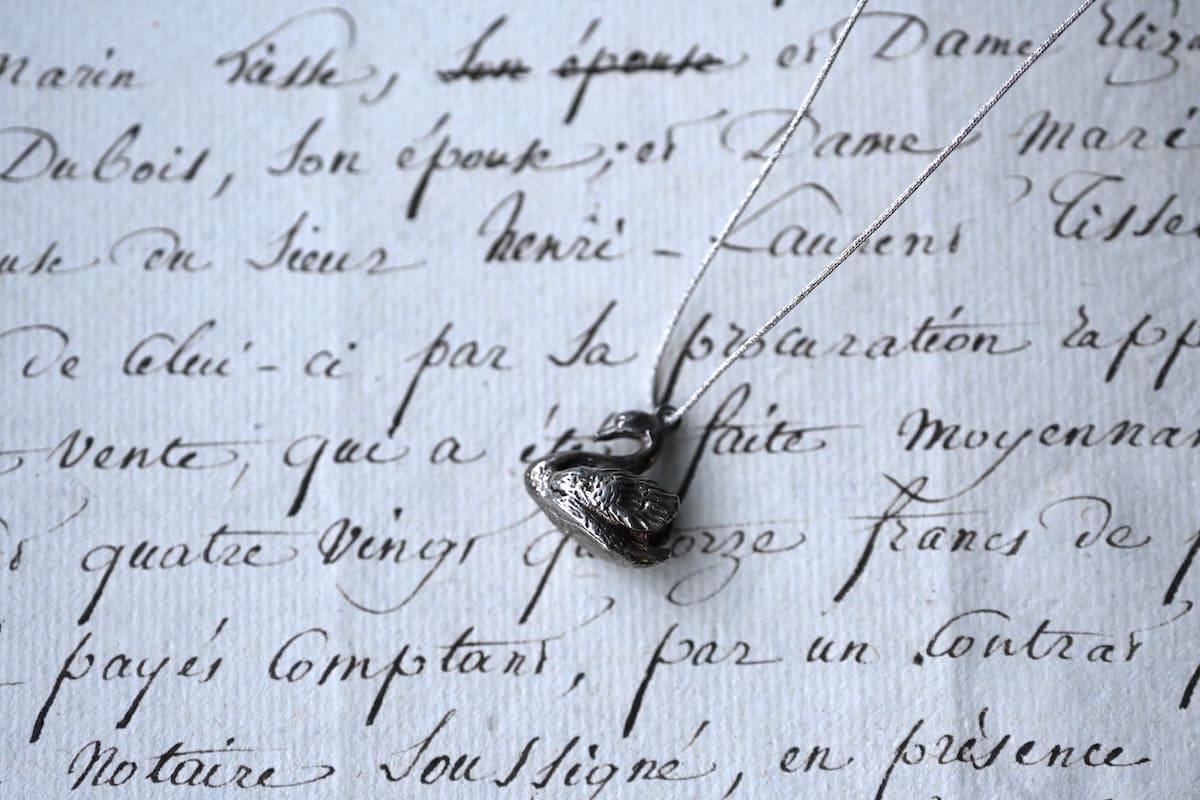 Marin Tisse, son épouse et Dame Eliz
Dubois, son épouse; et Dame Mari
du Sieur henri - Laurent Tisse
de Celui-ci par sa procuration rapp
vente, qui a été faite moyenna
quatre vingt quatorze francs de p
payés Comptant, par un Contrat
Notaire Soussigné, en présence